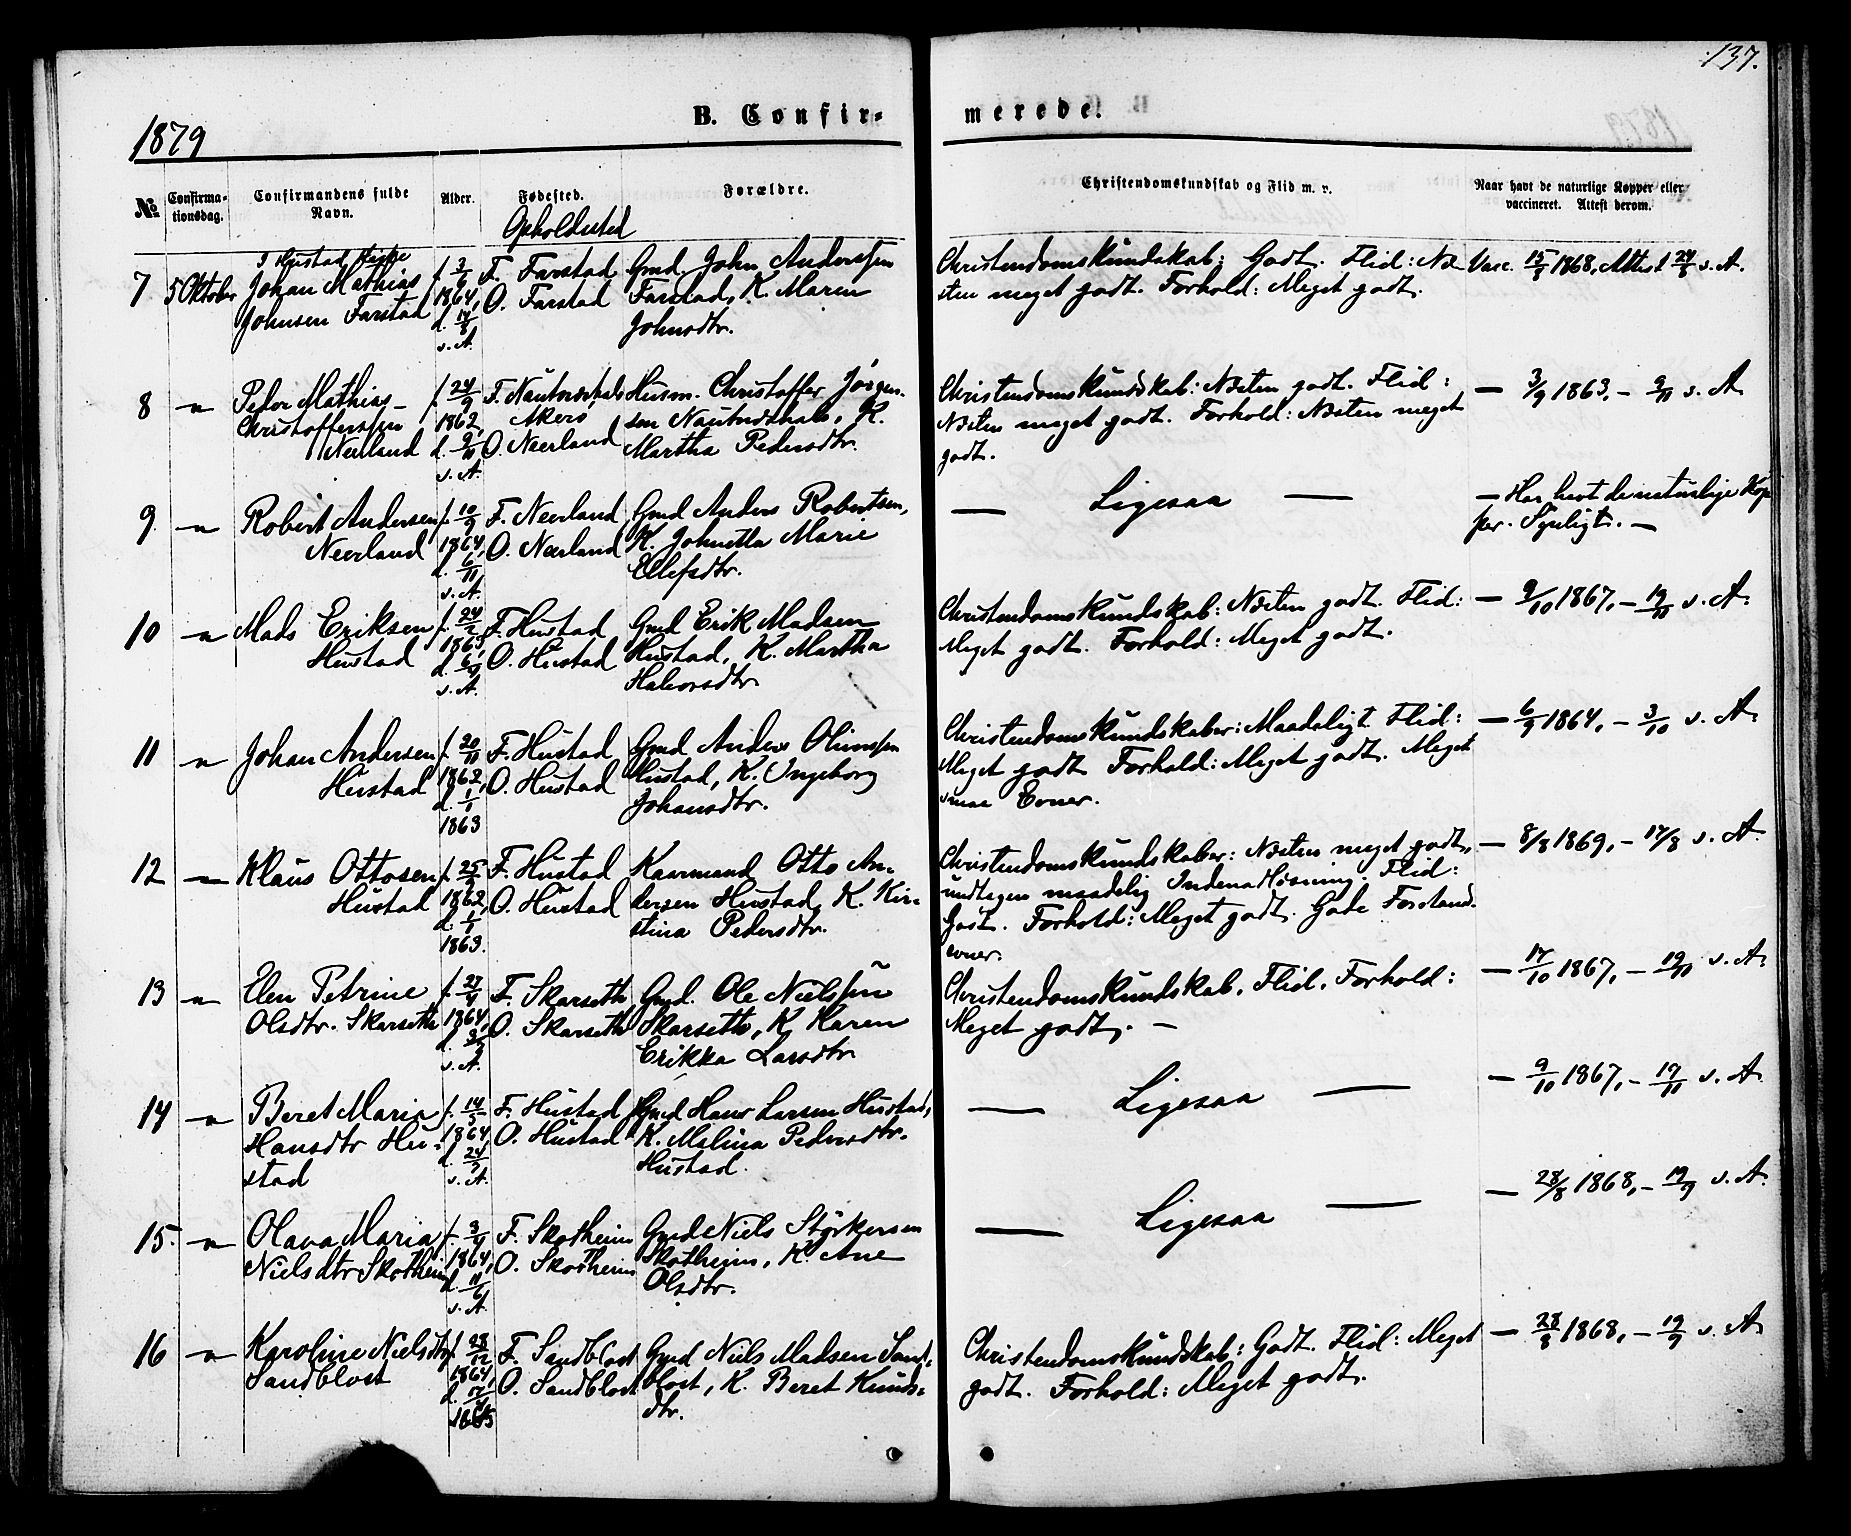 137.
1879
B. Confir-
merede.
No
Confirma-
tionsdag.
Confirmandens fulde
Navn.
Alder.
Fødested.
Opholdssted
Forældre.
Christendomskundskab og Flid m. v.
Naar havt de naturlige Kopper eller
vaccineret. Attest derom.
I Hustad Kirke
7 5 Oktober Johan Mathias
Johnsen Farstad
1864,
s. A.
F. Farstad
O. Farstad
Gmd. John Anderssen
Farstad, K. Maren
Johnsdtr.
Christendomskundskab: Godt. Flid: Næ
sten meget godt. Forhold: Meget godt.
Vacc. 1868, Attest s. A.
8 Peder Mathias
Christofferssen
Neerland
f. 24/9
1862,
d. 9/11
s. A.
Akerø
O. Neerland
Husm. Christoffer Jørgen-
sen K.
Martha Pedersdtr.
Christendomskundskab: Næsten godt. Flid:
Næsten meget godt. Forhold: Næsten meget
godt.
— 3/9 1863, — 9/11 s. A.
9 Robert Andersen
Neerland
f. 10/9
1864,
d. 6/11
s. A.
F. Neerland
O. Neerland
Gmd Anders Robertsen,
K. Johnetta Marie
Ellefsdtr.
— Ligesaa —
— Har havt de naturlige Kop
per. Synligt. —
10 Mads Eriksen
Hustad
s. A.
F. Hustad
O. Hustad
Gmd Erik Madsen
Hustad, K. Martha
Halvorsdtr.
Christendomskundskab: Næsten godt. Flid:
Meget godt. Forhold: Meget godt.
— 9/10 1867, — 19/11 s. A.
11 Johan Andersen
Hustad
f. 20/11
1862,
d. 1/1
1863
F. Hustad
O. Hustad
Gmd Anders
Hustad, K. Ingeborg
Johansdtr.
Christendomskundskaber: Maadeligt. Flid:
Meget godt Forhold: Meget godt. Meget
smaa Evner.
— 6/9 1864, — 3/10 s. A.
12 Klaus Ottosen
Hustad
1862,
d. 1/1
1863.
F. Hustad
O. Hustad
Kaarmand Otto An-
dersen Hustad, K. Kir-
stina Pedersdtr.
Christendomskundskaber: Næsten meget godt,
undtagen maadelig Indenadlæsning. Flid:
Godt. Forhold: Meget godt. Gode Forstands
evner.
— 8/8 1869, — 17/8 s. A.
13 Elen Petrine
Olsdtr. Skarseth
1864,
s. A.
F. Skarseth
O. Skarseth
Gmd. Ole Nielssen
Skarseth, K. Karen
Erikka Larsdtr.
Christendomskundskab, Flid, Forhold:
Meget godt. —
— 17/10 1867, — 19/11 s. A.
14 Beret Maria
Hansdtr Hu-
stad
1864
s. A.
F. Hustad
O. Hustad
Gmd Hans Larsen Hustad,
K. Malina Pedersdtr.
Hustad.
— Ligesaa —
— 9/10 1867, — 19/11 s. A.
15. Olava Maria
Nielsdtr Skotheim
1864,
d. 11/6
s. A.
F. Skotheim
O. Skotheim
Gmd Niels Størkersen
Skotheim, K. Ane
Olsdtr.
— Ligesaa —
— 28/8 1868, — 19/9 s. A.
16 Karoline Nielsdtr
Sandblost
f. 28/12
1864,
1865
F. Sandblost
O. Sandblost
Gmd Niels Madsen Sand-
blost, K. Beret Knuds-
dtr.
Christendomskundskab: Godt. Flid: Meget
godt. Forhold: Meget godt.
— 28/8 1868, — 19/9 s. A.